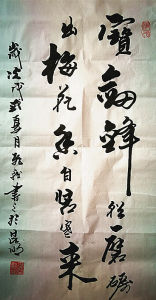 寶劍鋒從磨礪
出梅花香自苦寒来
歲次戊戌夏月書於昆明